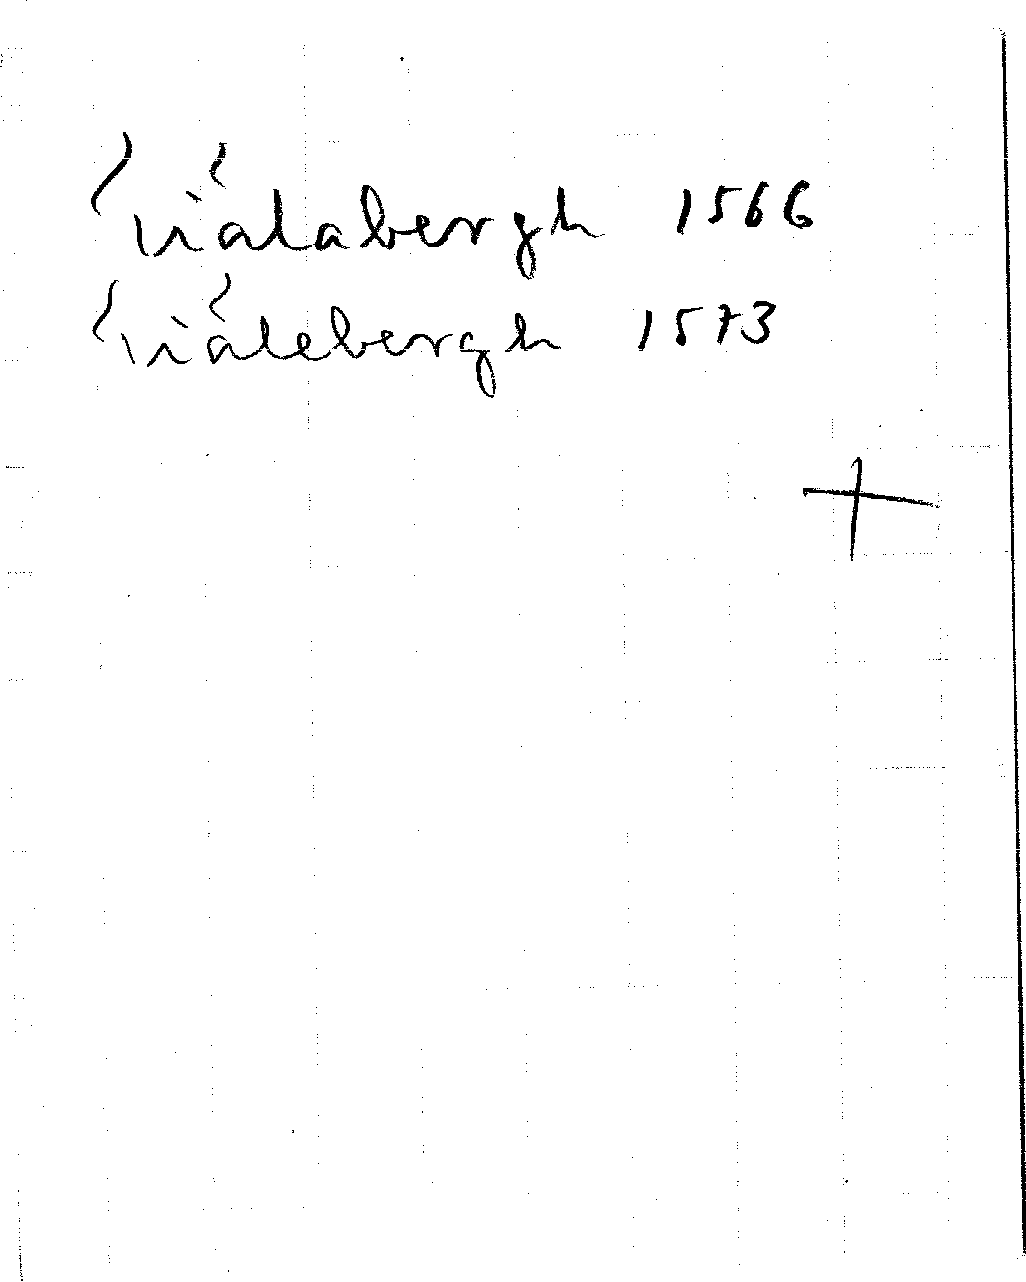 Siålabergh 1566
Siålebergh 1573
+